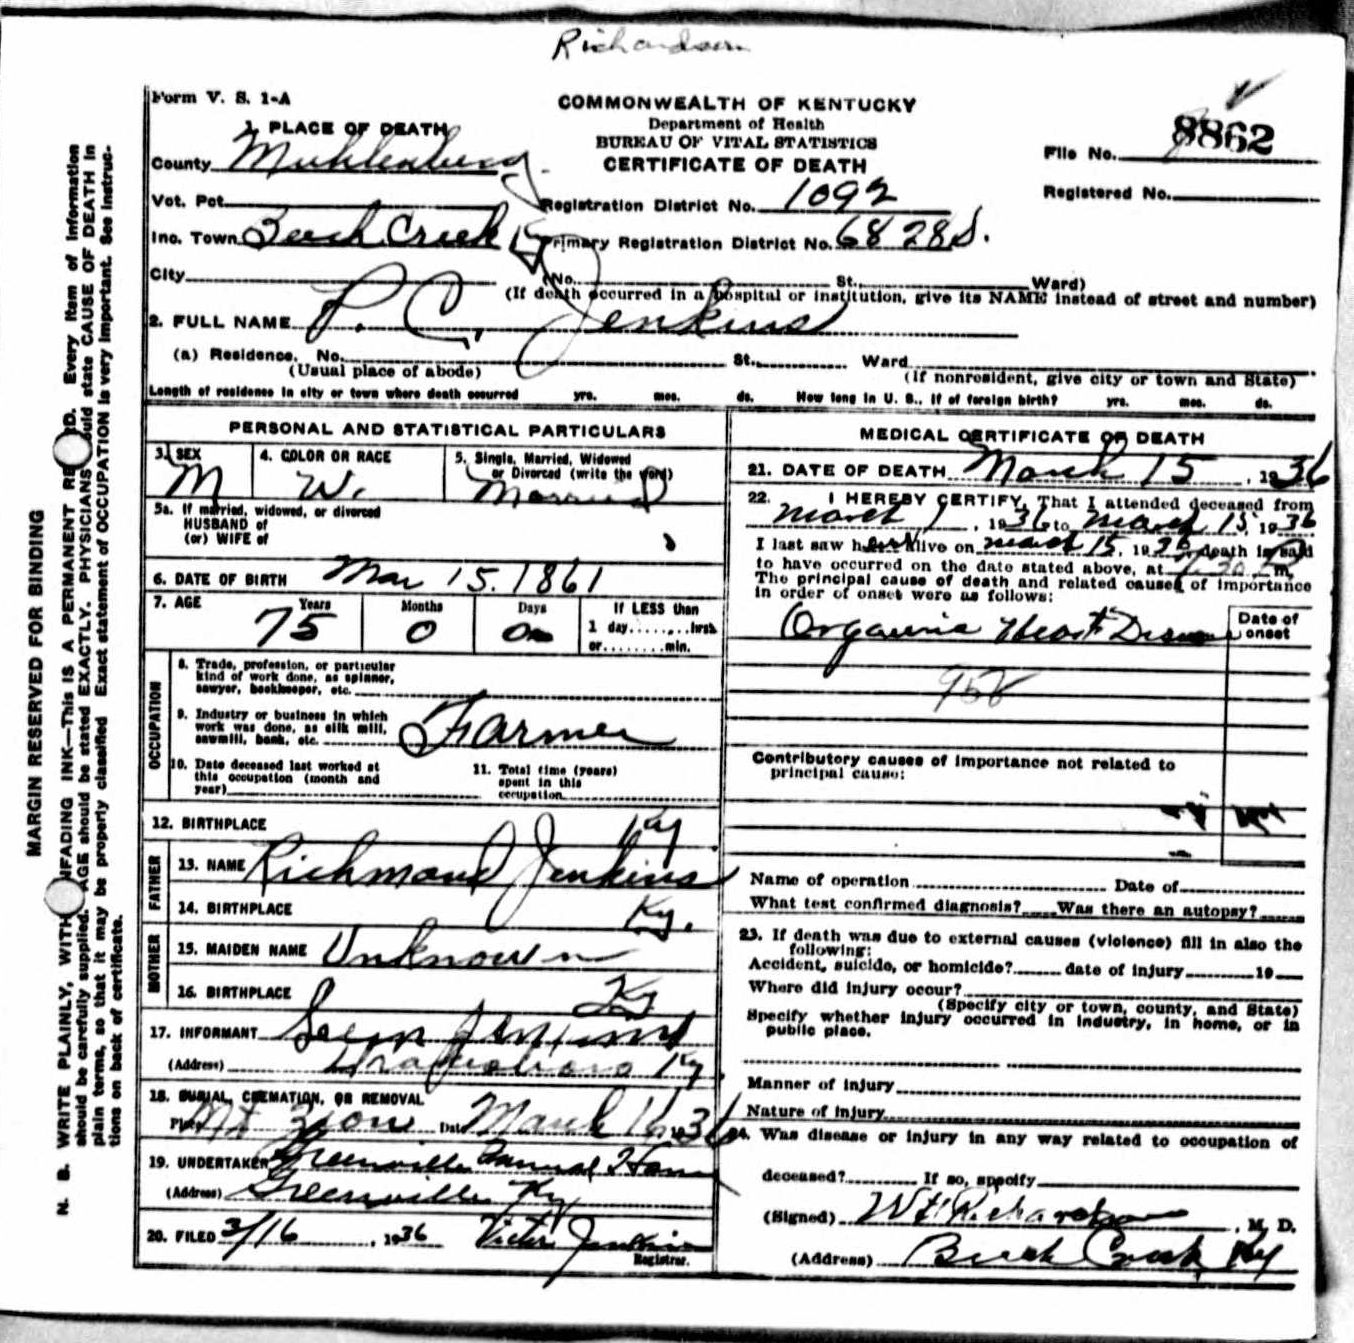 Richardson
Form V. S. 1-A
COMMONWEALTH OF KENTUCKY
Department of Health
BUREAU OF VITAL STATISTICS
CERTIFICATE OF DEATH
File No. 8862
Registered No.
1. PLACE OF DEATH
County Muhlenberg
Vot. Pct.
Registration District No. 1092
Inc. Town Beech Creek Ky
Primary Registration District No. 6828S.
City (No. St., Ward)
(If death occurred in a hospital or institution, give its NAME instead of street and number)
2. FULL NAME P. C. Jenkins
(a) Residence. No. St., Ward
(Usual place of abode) (If nonresident, give city or town and State)
Length of residence in city or town where death occurred yrs. mos. ds. How long in U. S., if of foreign birth? yrs. mos. ds.
PERSONAL AND STATISTICAL PARTICULARS
3. SEX M
4. COLOR OR RACE W.
5. Single, Married, Widowed
or Divorced (write the word)
Married
5a. If married, widowed, or divorced
HUSBAND of
(or) WIFE of
6. DATE OF BIRTH Mar 15. 1861
7. AGE Years Months Days If LESS than
75 0 0 1 day........hrs.
or........min.
OCCUPATION
8. Trade, profession, or particular
kind of work done, as spinner,
sawyer, bookkeeper, etc.
9. Industry or business in which
work was done, as silk mill,
sawmill, bank, etc. Farmer
10. Date deceased last worked at
this occupation (month and
year)
11. Total time (years)
spent in this
occupation
12. BIRTHPLACE Ky
FATHER
13. NAME Richmond Jenkins
14. BIRTHPLACE Ky.
MOTHER
15. MAIDEN NAME Unknown
16. BIRTHPLACE Ky
17. INFORMANT Jenkins
(Address) Ky.
18. BURIAL, CREMATION, OR REMOVAL
Place Mt Zion Date March 16 1936
19. UNDERTAKER Greenville Funeral Home
(Address) Greenville Ky
20. FILED 3/16, 1936 Victor Jenkins
Registrar.
MEDICAL CERTIFICATE OF DEATH
21. DATE OF DEATH March 15, 1936
22. I HEREBY CERTIFY, That I attended deceased from
March 1, 1936 to March 15, 1936
I last saw him alive on March 15, 1936, death is said
to have occurred on the date stated above, at m.
The principal cause of death and related causes of importance
in order of onset were as follows:
Date of
onset
Organic Heart Disease
Contributory causes of importance not related to
principal cause:
Name of operation Date of
What test confirmed diagnosis? Was there an autopsy?
23. If death was due to external causes (violence) fill in also the
following:
Accident, suicide, or homicide? date of injury 19
Where did injury occur?
(Specify city or town, county, and State)
Specify whether injury occurred in industry, in home, or in
public place.
Manner of injury
Nature of injury
24. Was disease or injury in any way related to occupation of
deceased? If so, specify
(Signed) W H Richardson, M. D.
(Address) Beech Creek, Ky
MARGIN RESERVED FOR BINDING
N. B. WRITE PLAINLY, WITH UNFADING INK—THIS IS A PERMANENT RECORD. Every item of information
should be carefully supplied. AGE should be stated EXACTLY. PHYSICIANS should state CAUSE OF DEATH in
plain terms, so that it may be properly classified. Exact statement of OCCUPATION is very important. See instruc-
tions on back of certificate.